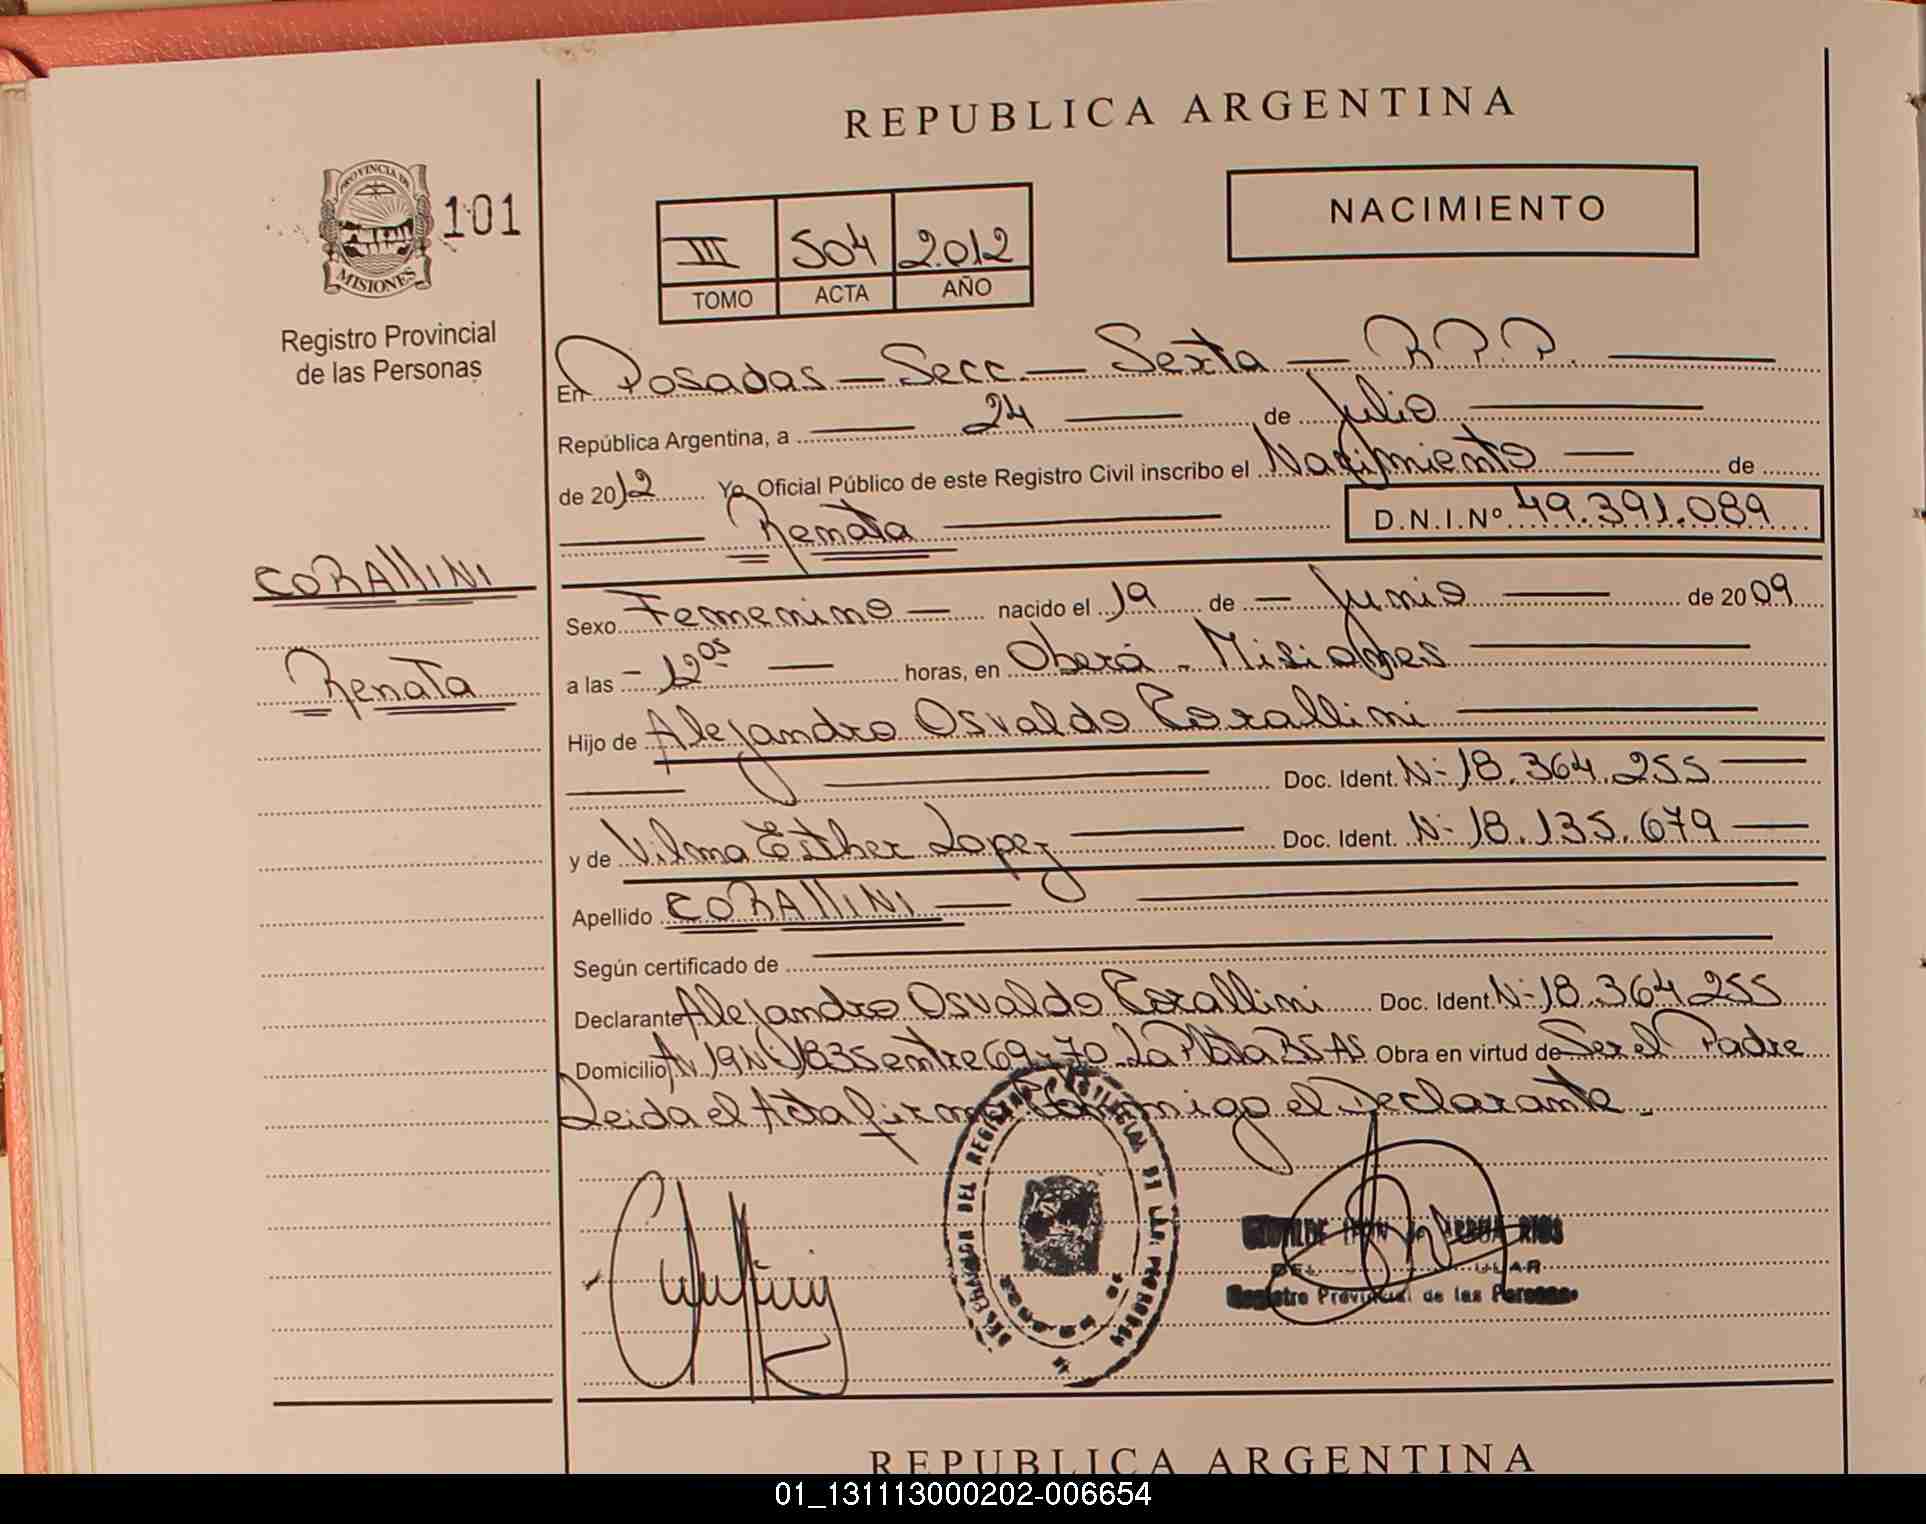 REPUBLICA ARGENTINA
PROVINCIA DE
MISIONES
101
Registro Provincial
de las Personas
III 504 2.012
TOMO ACTA AÑO
NACIMIENTO
En Posadas - Secc. - Sexta - R.P.P.
República Argentina, a 24 de Julio
de 2012 Yo, Oficial Público de este Registro Civil inscribo el Nacimiento de
Renata D.N.I.Nº 49.391.089
CORALLINI
Renata
Sexo Femenino nacido el 19 de Junio de 2009
a las 12⁰⁵ horas, en Oberá - Misiones
Hijo de Alejandro Osvaldo Corallini
Doc. Ident. Nº 18.364.255
y de Vilma Esther Lopez Doc. Ident. Nº 18.135.679
Apellido CORALLINI
Según certificado de
Declarante Alejandro Osvaldo Corallini Doc. Ident. Nº 18.364.255
Domicilio Av 19 Nº 1835 entre 69 y 70 La Plata BS AS Obra en virtud de Ser el Padre
Leida el Acta firma Conmigo el Declarante.
DELEGACION DEL REGISTRO PROVINCIAL DE LAS PERSONAS
Registro Provincial de las Personas
REPUBLICA ARGENTINA
01_131113000202-006654